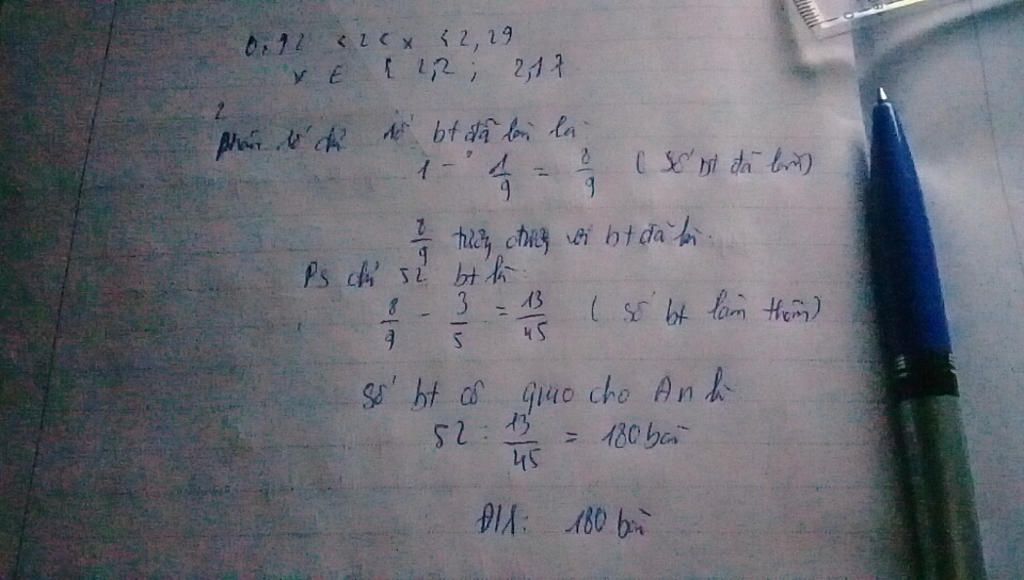 0,92 < 2 < x < 2,29
x ∈ { 2,2 ; 2,17
2
Phân số chỉ số bt đã làm là
1 - 1/9 = 8/9 ( Số bt đã làm)
8/9 tương đương với bt đã làm.
Ps chỉ 52 bt là
8/9 - 3/5 = 13/45 ( Số bt làm thêm)
Số bt cô giao cho An là
52 : 13/45 = 180 bài
Đ/S: 180 bài